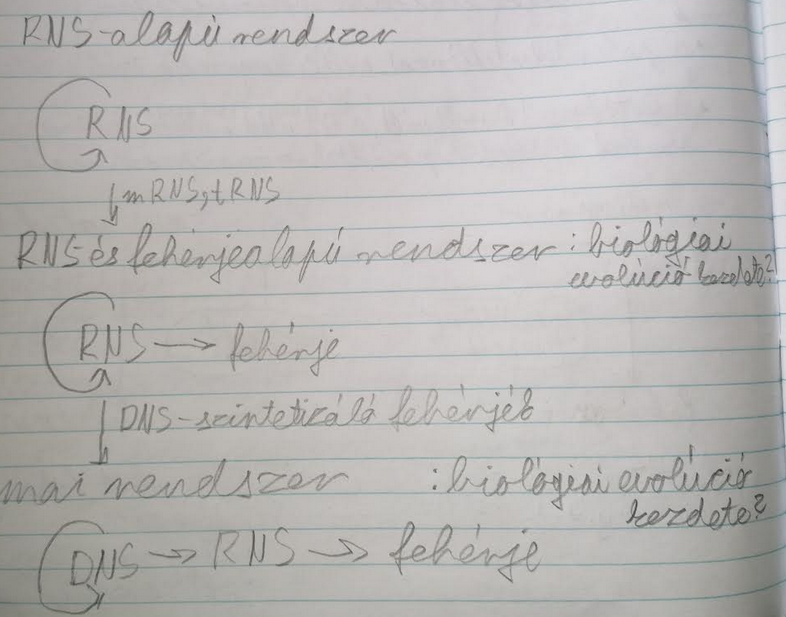 RNS-alapú rendszer
RNS
↓ mRNS, tRNS
RNS és fehérjealapú rendszer : biológiai
evolúció kezdete?
RNS → fehérje
↓ DNS-szintetizáló fehérjék
mai rendszer : biológiai evolúció
kezdete?
DNS → RNS → fehérje